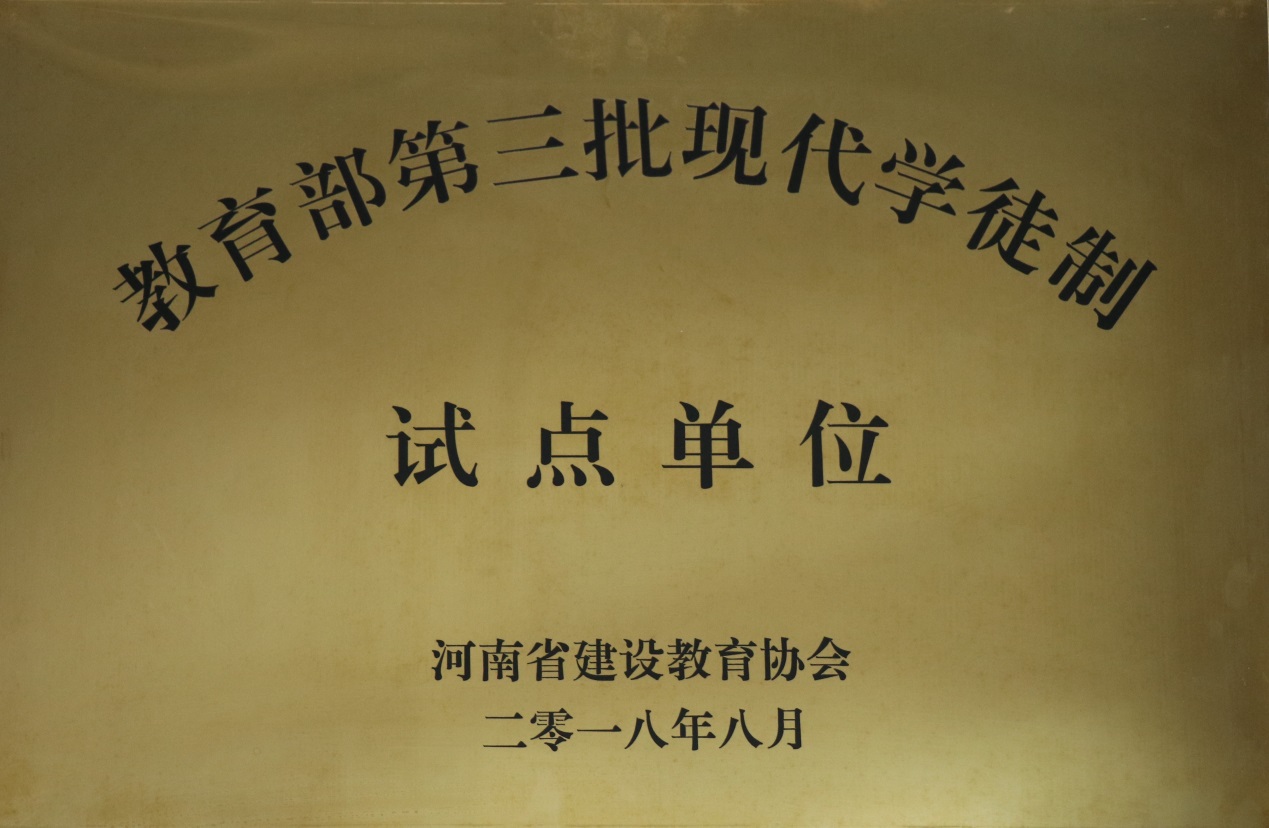 教育部第三批现代学徒制
试点单位
河南省建设教育协会
二零一八年八月